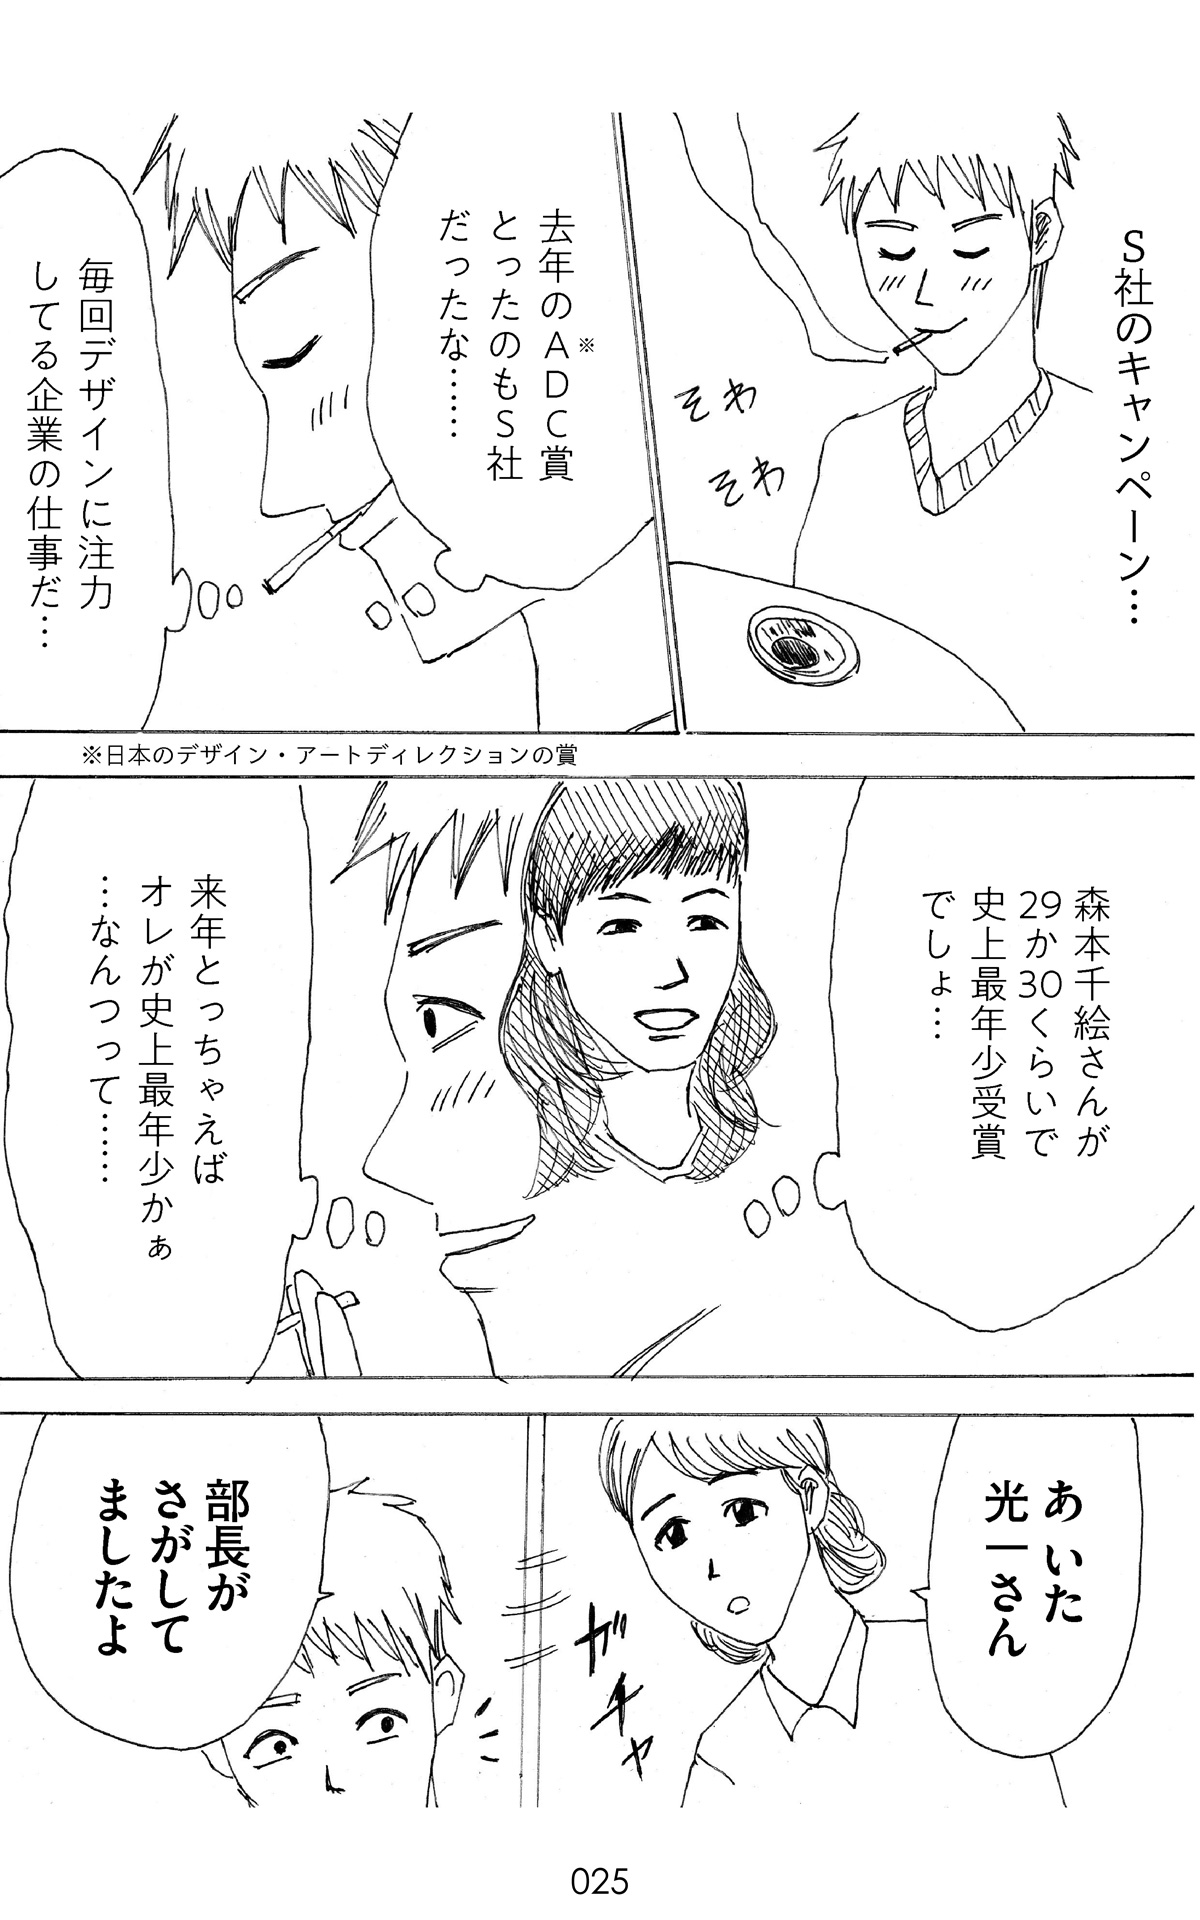 S社のキャンペーン…
そわ
そわ
去年のADC賞
※
とったのもS社
だったな……
毎回デザインに注力
してる企業の仕事だ…
※日本のデザイン・アートディレクションの賞
森本千絵さんが
29か30くらいで
史上最年少受賞
でしょ…
来年とっちゃえば
オレが史上最年少かぁ
…なんつって……
あ いた
光一さん
ガチャ
部長が
さがして
ましたよ
025